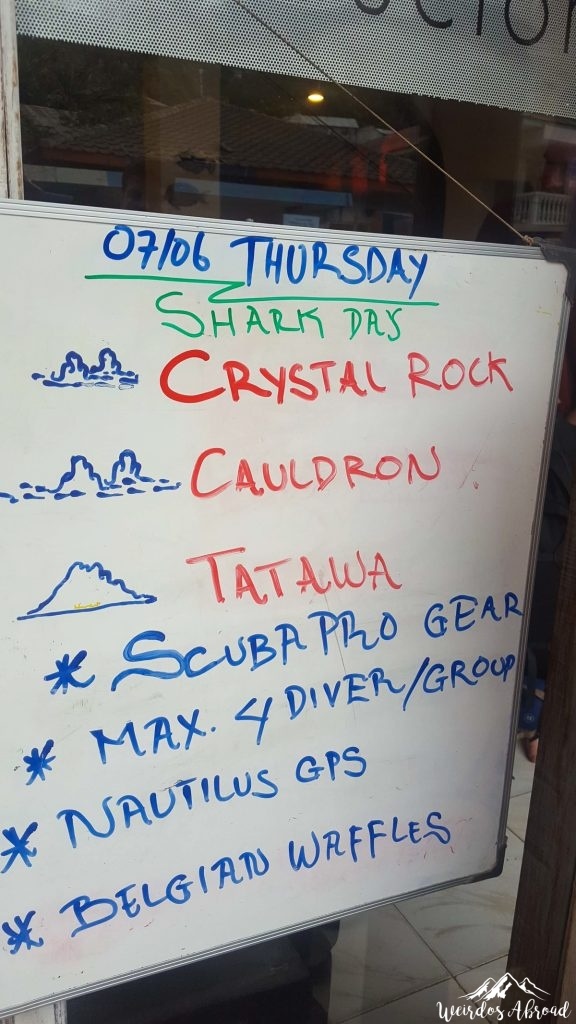 07/06 THURSDAY
SHARK DAY
CRYSTAL ROCK
CAULDRON
TATAWA
* SCUBAPRO GEAR
* MAX. 4 DIVER/GROUP
* NAUTILUS GPS
* BELGIAN WAFFLES
Weirdos Abroad